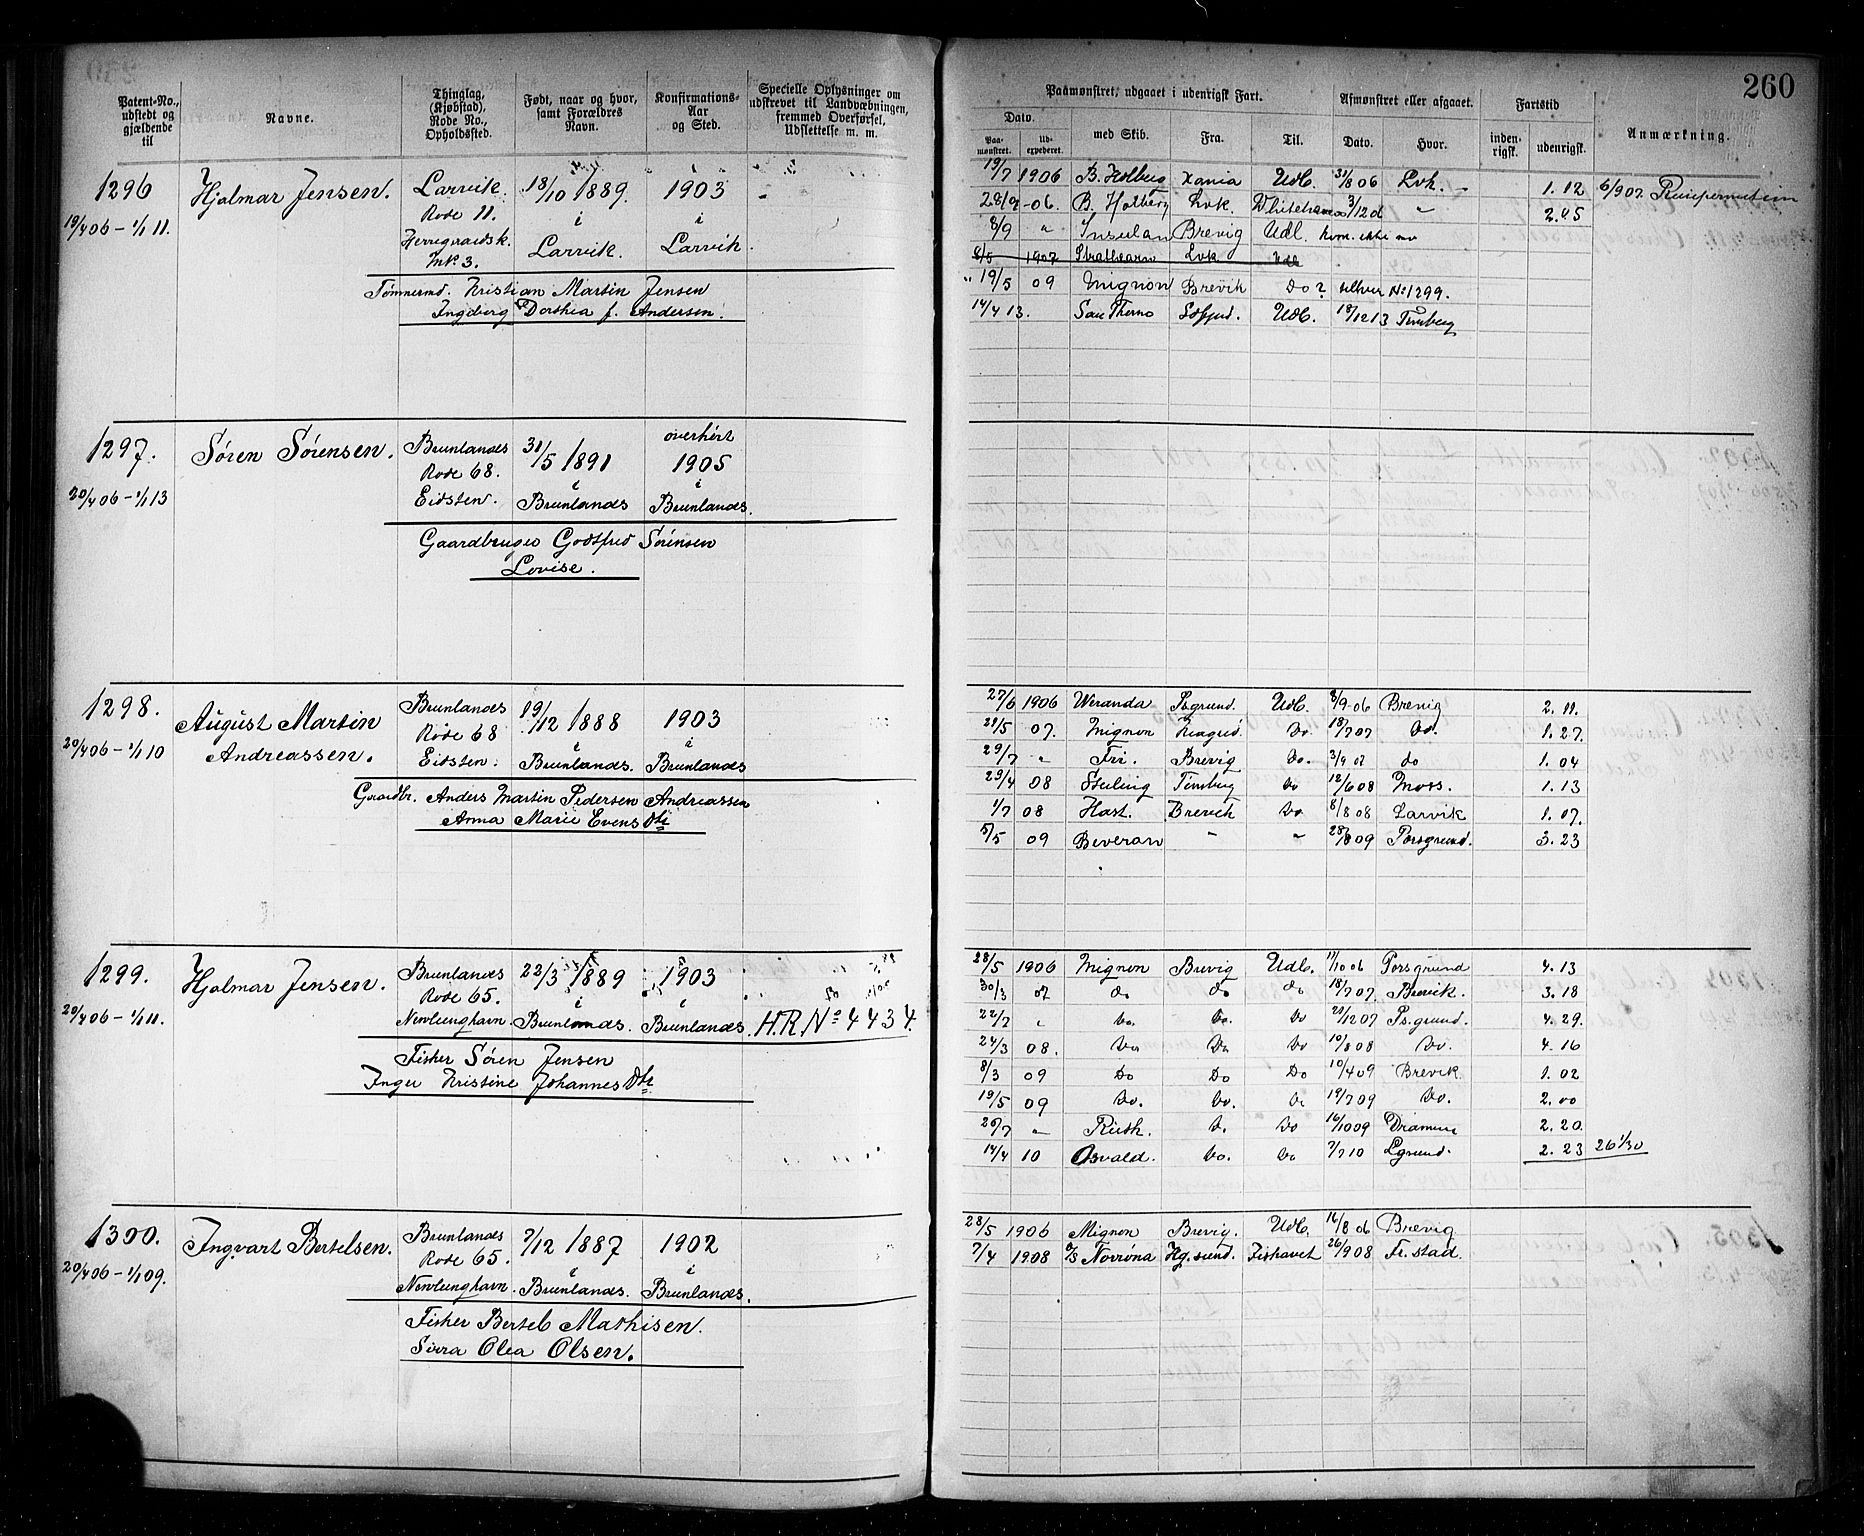 260
Patent-No., udstedt og gjældende til
Navne.
Thinglag, (Kjøbstad), Rode No., Opholdssted.
Født, naar og hvor, samt Forældres Navn.
Konfirmations-Aar og Sted.
Specielle Oplysninger om udskrevet til Landvæbningen, fremmed Overførsel, Udslettelse m. m.
Paamønstret, udgaaet i udenrigsk Fart.
Afmønstret eller afgaaet.
Fartstid
Anmærkning.
Dato.
Paa-mønstret.
Ud-expederet.
med Skib.
Fra.
Til.
Dato.
Hvor.
inden-rigsk.
udenrigsk.
1296 Hjalmar Jensen. Larvik. 18/10 1889. 1903
19/4 06 – 1/1 11. Rode 11. i i
Herregaardsk. Larvik. Larvik
Mk 3.
Tømmermd. Kristian Martin Jensen
Ingeborg Dorthea f. Andersen.
19/7 1906 B. Holberg Xania Udl. 31/8 06 Lvk. 1.12 6/907
28/9 -06. B. Holberg Lvk. Whitehaven 3/12 d " 2.05
8/9 " Insulan Brevig Udl. kom. ikke
8/5 1907 Strathearn Lvk Udl
" 19/5 09 Mignon Brevik Do? No 1299.
14/4 13. Udl. 18/12 13 Tønsberg
1297. Søren Sørensen. Brunlanæs 31/5 1891 overhört 1905
20/4 06 – 1/1 13 Rode 68. i i
Eidsten. Brunlanæs Brunlanæs.
Gaardbruger Godtfred Sørensen
Lovise.
1298. August Martin Brunlanæs 19/12 1888 1903
20/4 06 – 1/1 10 Andreassen. Rode 68 i i
Eidsten. Brunlanæs. Brunlanæs
Gaardbr. Anders Martin Pedersen Andreassen
Anna Marie Evens Dtr
27/6 1906 Weranda Psgrund. Udl. 8/9-06 Brevig 2.11.
21/5 07. Mignon Do. 18/7 07 Do. 1.27.
29/7 " Fri. Brevig Do. 3/9 07 do 1.04
23/4 08 Sterling Tønsberg Do 12/6 08 Moss. 1.13
1/7 08 Hast. Brevik Do 8/8 08 Larvik 1.07.
5/5 09 Beveran " " 28/8 09 Porsgrund. 3.23
1299. Hjalmar Jensen. Brunlanæs 22/3 1889 1903
20/4 06 – 1/1 11. Rode 65. i i
Nevlunghavn. Brunlanæs Brunlanæs. H.R. No 4434.
Fisker Søren Jensen
Inger Kristine Johannes Dtr
28/5 1906 Mignon Brevig Udl. 17/10 06 Porsgrund 4.13
30/3 07 do do do 18/7 07. Brevik. 3.18
22/7 " Do. Do. Do 21/12 07 Ps.grund. 4.29.
24/3 08. Do Do Do 10/8 08 Do. 4.16
8/3 09 Do Do Do 10/4 09 Brevik. 1.02
19/5 09 Do. Do. Do 19/7 09 Do. 2.00
26/7 " Ruth. D. Do 16/10 09 Drammen 2.20
14/4 10 Osvald. Do. Do 7/7 10 Lgrund. 2.23 26 1/30
1300. Ingvart Bertelsen. Brunlanæs 7/12 1887 1902
20/4 06 – 1/1 09. Rode 65. i i
Nevlunghavn. Brunlanæs. Brunlanæs.
Fisker Bertel Mathisen.
Sivra Olea Olsen.
28/5 1906 Mignon Brevig. Udl. 16/8 06 Brevig
7/4 1908 Norröna Hg.sund. Fishavet 26/9 08 Fr.stad.